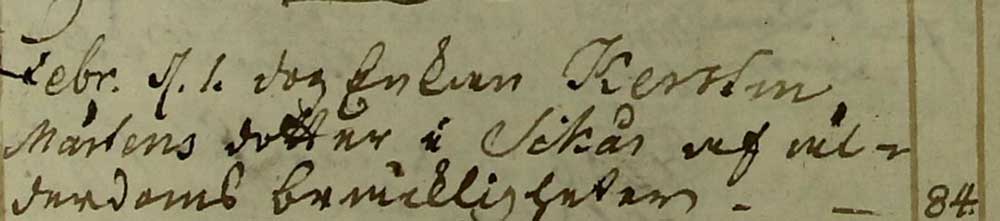 Febr. d. 1. dog Enkan Kerstin
Mårtens dotter i Sikås af ål-
derdoms bräckligheter - — 84.